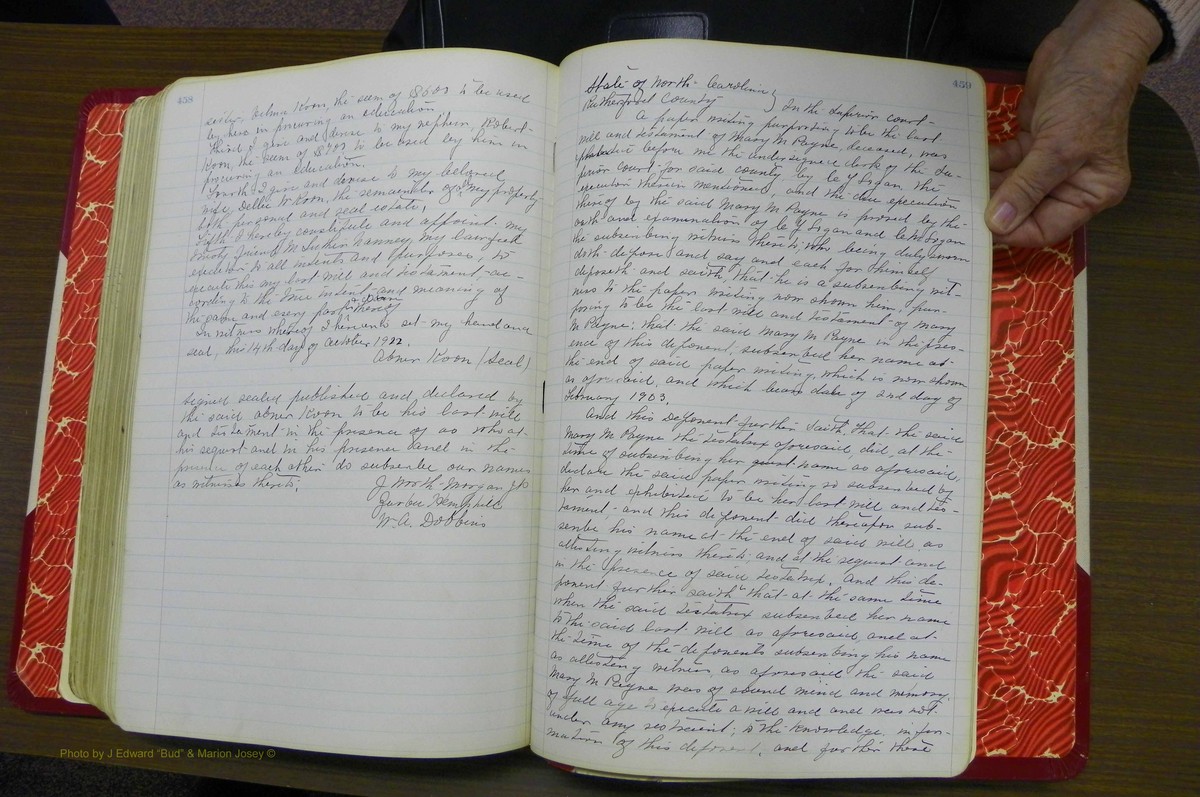 458
sister, Velma Koon, the sum of $600 to be used
by her in procuring an education.
Third I give and devise to my nephew, Robert
Koon, the sum of $700 to be used by him in
procuring an education.
Fourth, I give and devise to my beloved
wife, Dellie W Koon, the remainder of my property
both personal and real estate,
Fifth I hereby constitute and appoint my
trusty friend M Luther Nanney my lawful
executor to all intents and purposes, to
execute this my last will and testament ac-
cording to the true intent and meaning of
the same and every part thereof
In witness whereof I hereunto set my hand and
seal, this 14th day of October 1922.
Abner Koon (Seal)
Signed sealed published and declared by
the said Abner Koon to be his last will
and testament in the presence of us who at
his request and in his presence and in the
presence of each other do subscribe our names
as witnesses thereto.
J Worth Morgan
Hemphill
W. A. Dobbins
459
State of North Carolina }
Rutherford County } In the Superior court
A paper writing purporting to be the last
will and testament of Mary M Payne, deceased, was
exhibited before me the undersigned clerk of the Su-
perior court for said county by C Y Logan the
executor therein mentioned and the due execution
thereof by the said Mary M Payne is proved by the
oath and examination of C Y Logan and Logan
the subscribing witness thereto who being duly sworn
doth depose and say and each for himself
deposeth and saith, that he is a subscribing wit-
ness to the paper writing now shown him, pur-
porting to be the last will and testament of Mary
M Payne; that the said Mary M Payne in the pres-
ence of this deponent, subscribed her name at
the end of said paper writing, which is now shown
as aforesaid, and which bears date of 2nd day of
February 1903.
And this Deponent further saith, that the said
Mary M Payne the testatrix aforesaid, did, at the
time of subscribing her name as aforesaid,
declare the said paper writing so subscribed by
her and exhibited to be her last will and tes-
tament and this deponent did thereupon sub-
scribe his name at the end of said will as
attesting witness thereto, and at the request and
in the presence of said testatrix. And this de-
ponent further saith that at the same time
when the said testatrix subscribed her name
to the said last will as aforesaid and at
the time of the deponents subscribing his name
as attesting witness as aforesaid the said
Mary M Payne was of sound mind and memory,
of full age to execute a will and and was not
under any restraint, to the knowledge, infor-
mation of this deponent, and further these
Photo by J Edward "Bud" & Marion Josey ©